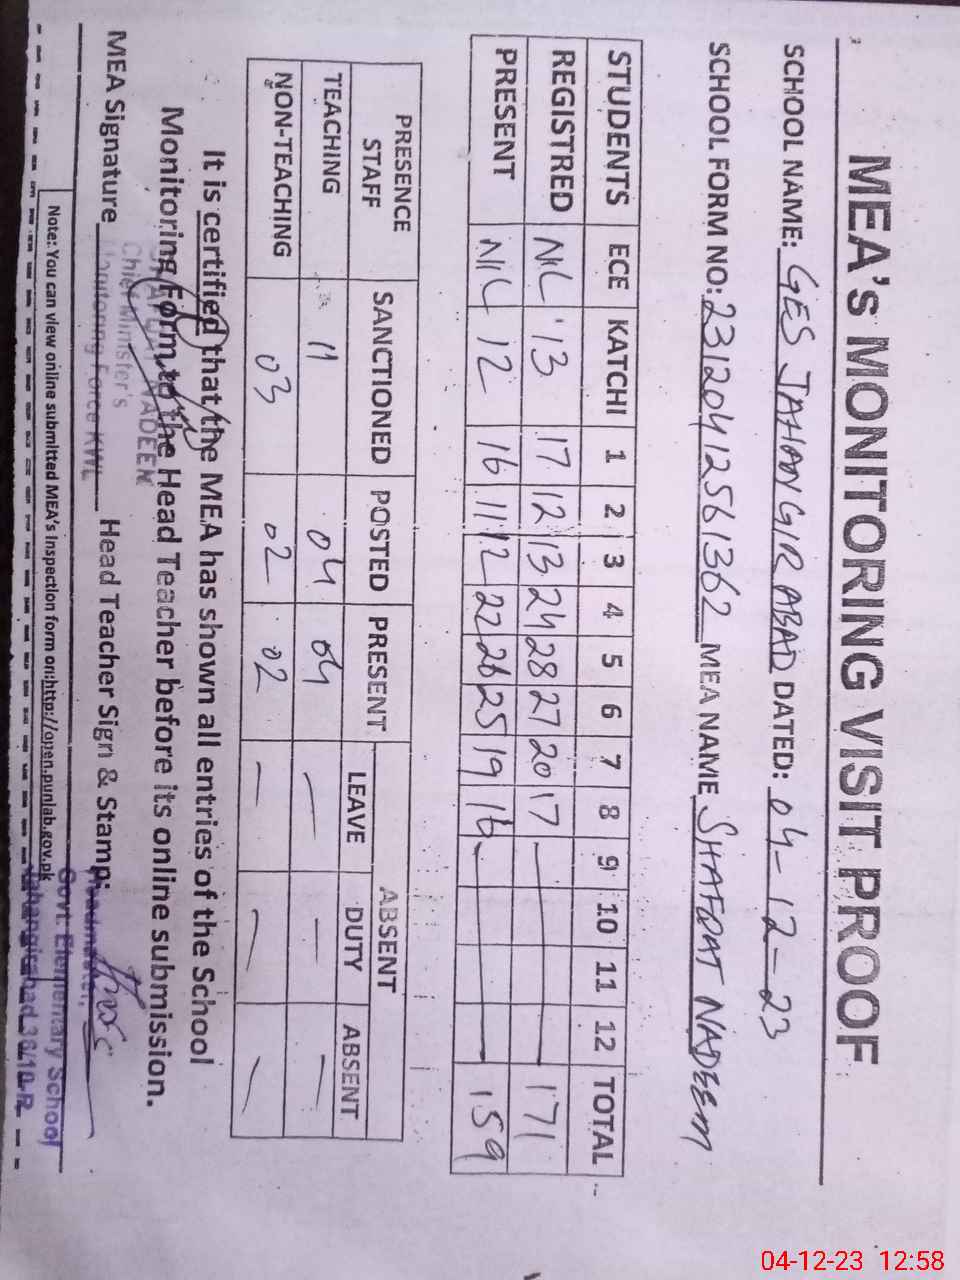 MEA's MONITORING VISIT PROOF
SCHOOL NAME: GES JAHANGIR ABAD DATED: 04-12-23
SCHOOL FORM NO: 23120412561362 MEA NAME SHAFQAT NADEEM
STUDENTS ECE KATCHI 1 2 3 4 5 6 7 8 9 10 11 12 TOTAL
REGISTRED NIL 13 17 12 13 24 28 27 20 17 171
PRESENT NIL 12 16 11 12 22 26 25 19 16 159
PRESENCE STAFF SANCTIONED POSTED PRESENT ABSENT
LEAVE DUTY ABSENT
TEACHING 11 04 04 — — —
NON-TEACHING 03 02 02 — — —
It is certified that the MEA has shown all entries of the School
Monitoring Form to the Head Teacher before its online submission.
SHAFQAT NADEEM
Chief Minister's
Monitoring Force KWL
MEA Signature Head Teacher Sign & Stamp:
Headmaster,
Govt: Elementary School
Jahangirabad 36/10-R
Note: You can view online submitted MEA's Inspection form on:http://open.punjab.gov.pk
04-12-23 12:58